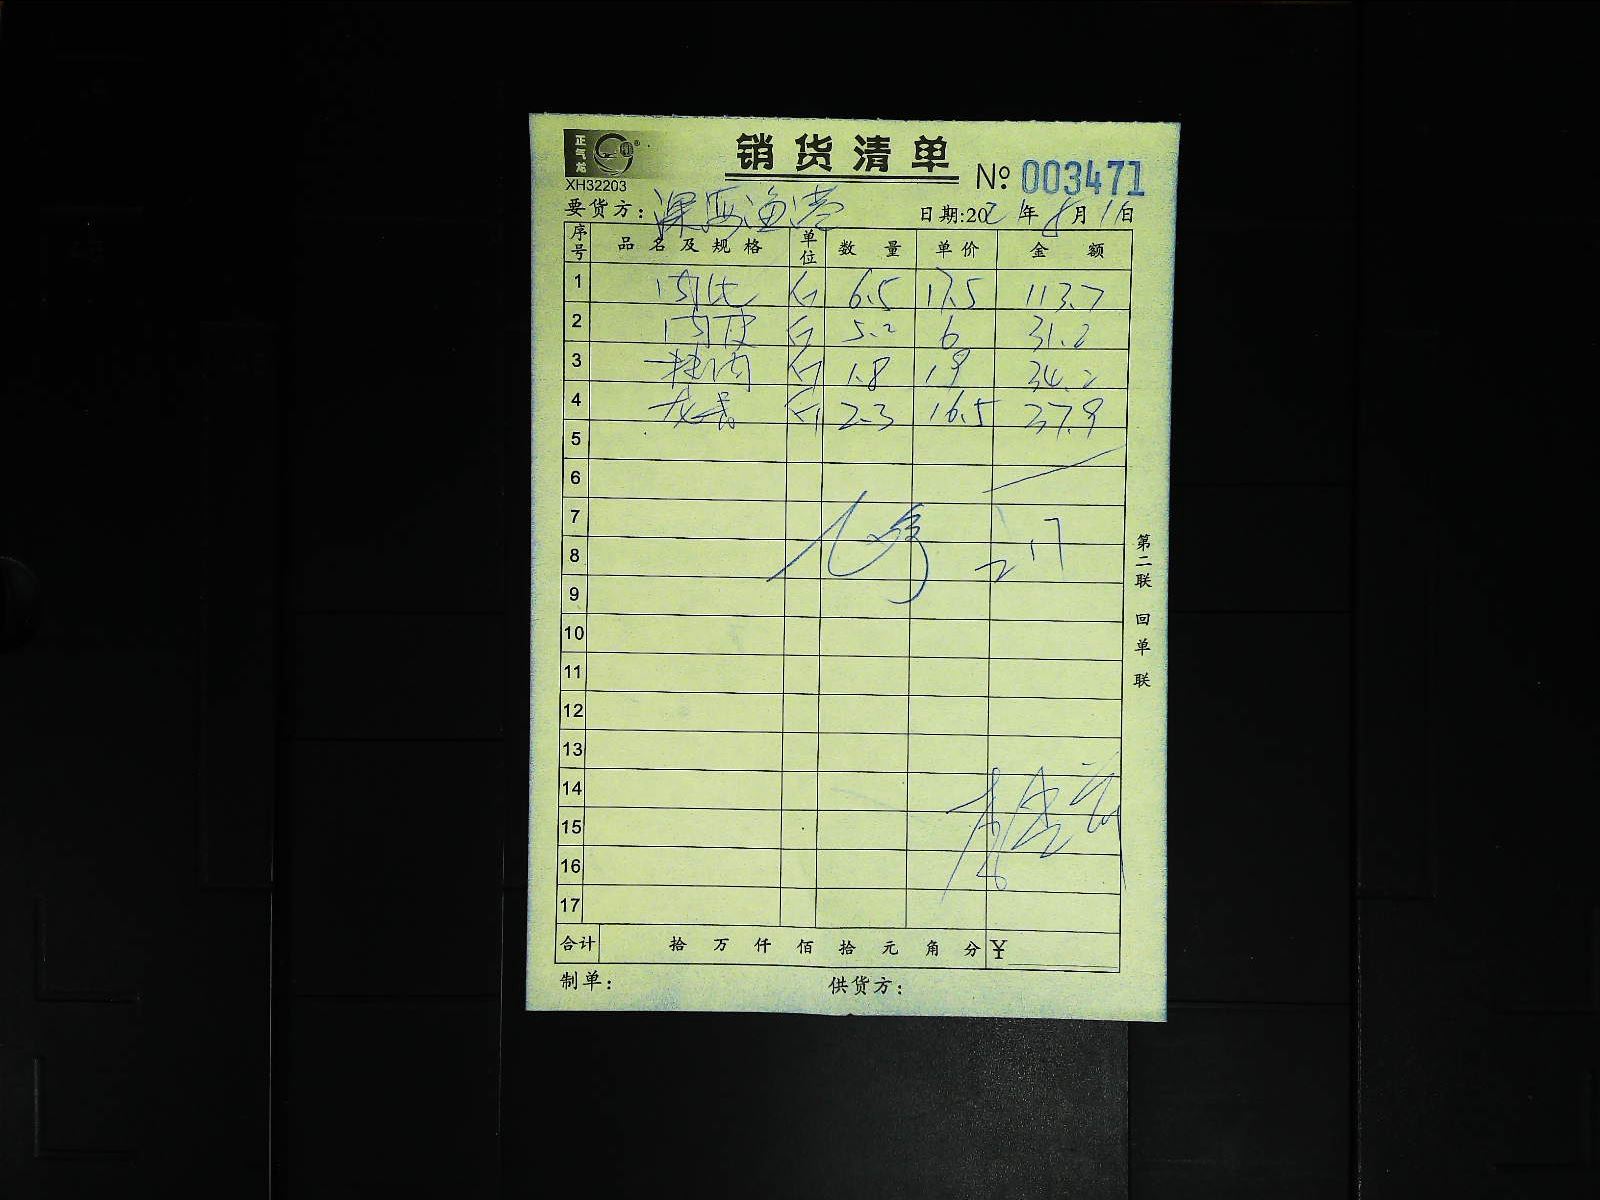 正气龙
销货清单
XH32203
№ 003471
要货方: 深海渔港 日期:2021年8月11日
序号 品名及规格 单位 数量 单价 金额
1 斤 6.5 17.5 113.7
2 肉皮 斤 5.2 6 31.2
3 斤 1.8 19 34.2
4 龙骨 斤 2.3 16.5 37.9
5
6
7
8 217
9
10
11
12
13
14
15
16
17
合计 拾 万 仟 佰 拾 元 角 分 ¥
制单: 供货方:
第二联 回单联